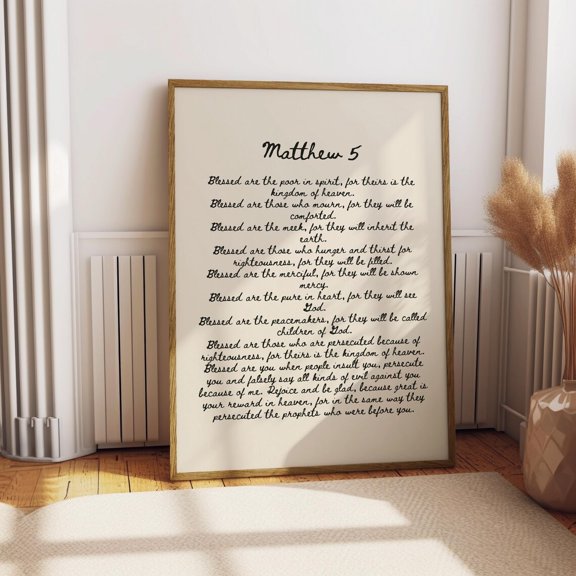 Matthew 5
Blessed are the poor in spirit, for theirs is the
kingdom of heaven.
Blessed are those who mourn, for they will be
comforted.
Blessed are the meek, for they will inherit the
earth.
Blessed are those who hunger and thirst for
righteousness, for they will be filled.
Blessed are the merciful, for they will be shown
mercy.
Blessed are the pure in heart, for they will see
God.
Blessed are the peacemakers, for they will be called
children of God.
Blessed are those who are persecuted because of
righteousness, for theirs is the kingdom of heaven.
Blessed are you when people insult you, persecute
you and falsely say all kinds of evil against you
because of me. Rejoice and be glad, because great is
your reward in heaven, for in the same way they
persecuted the prophets who were before you.